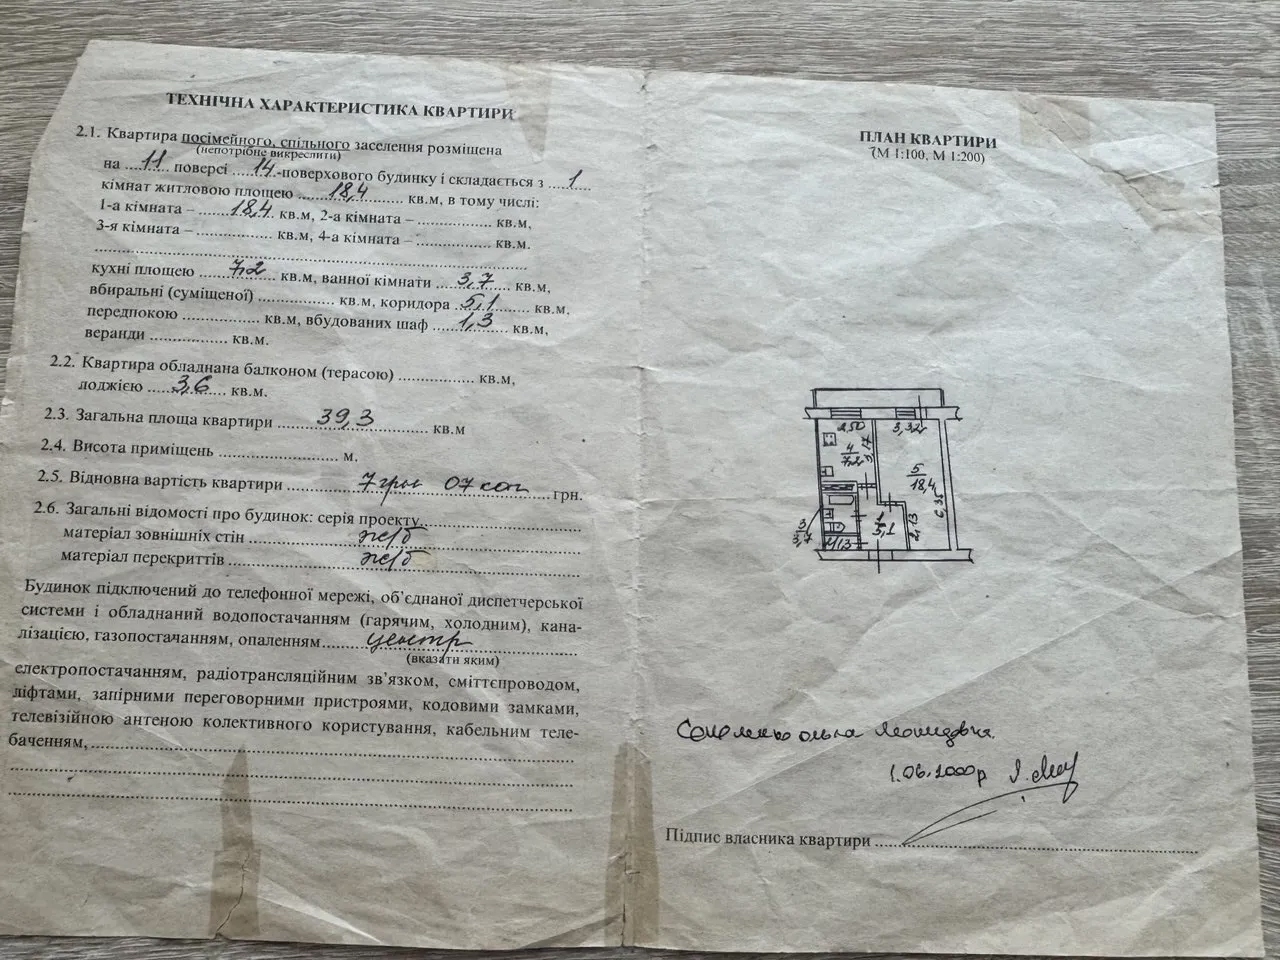 ТЕХНІЧНА ХАРАКТЕРИСТИКА КВАРТИРИ
2.1. Квартира посімейного, спільного заселення розміщена
(непотрібне викреслити)
на ... 11 ... поверсі ... 14 ...-поверхового будинку і складається з ... 1 ...
кімнат житловою площею ... 18,4 ... кв.м, в тому числі:
1-а кімната – ... 18,4 ... кв.м, 2-а кімната – ... кв.м,
3-я кімната – ... кв.м, 4-а кімната – ... кв.м.
кухні площею ... 7,2 ... кв.м, ванної кімнати ... 3,7 ... кв.м,
вбиральні (суміщеної) ... кв.м, коридора ... 5,1 ... кв.м,
передпокою ... кв.м, вбудованих шаф ... 1,3 ... кв.м,
веранди ... кв.м.
2.2. Квартира обладнана балконом (терасою) ... кв.м,
лоджією ... 3,6 ... кв.м.
2.3. Загальна площа квартири ... 39,3 ... кв.м
2.4. Висота приміщень ... м.
2.5. Відновна вартість квартири ... 7 грн 07 коп ... грн.
2.6. Загальні відомості про будинок: серія проекту...
матеріал зовнішніх стін ... ж/б
матеріал перекриттів ... ж/б
Будинок підключений до телефонної мережі, об'єднаної диспетчерської
системи і обладнаний водопостачанням (гарячим, холодним), кана-
лізацією, газопостачанням, опаленням... центр
(вказати яким)
електропостачанням, радіотрансляційним зв'язком, сміттєпроводом,
ліфтами, запірними переговорними пристроями, кодовими замками,
телевізійною антеною колективного користування, кабельним теле-
баченням,...
ПЛАН КВАРТИРИ
(М 1:100, М 1:200)
2,50 3,32
4
7,2
3,17
5
18,4
6,36
3
3,7
1
5,1
2,13
1,3
Ольга Леонидовна
1.06.2000р
Підпис власника квартири ...